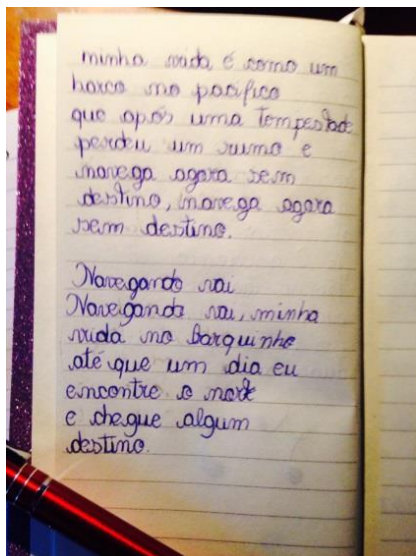 minha vida é como um
barco no pacífico
que após uma tempestade
perdeu um rumo e
navega agora sem
destino, navega agora
sem destino.
Navegando vai
Navegando vai, minha
vida no barquinho
até que um dia eu
encontre o norte
e chegue algum
destino.